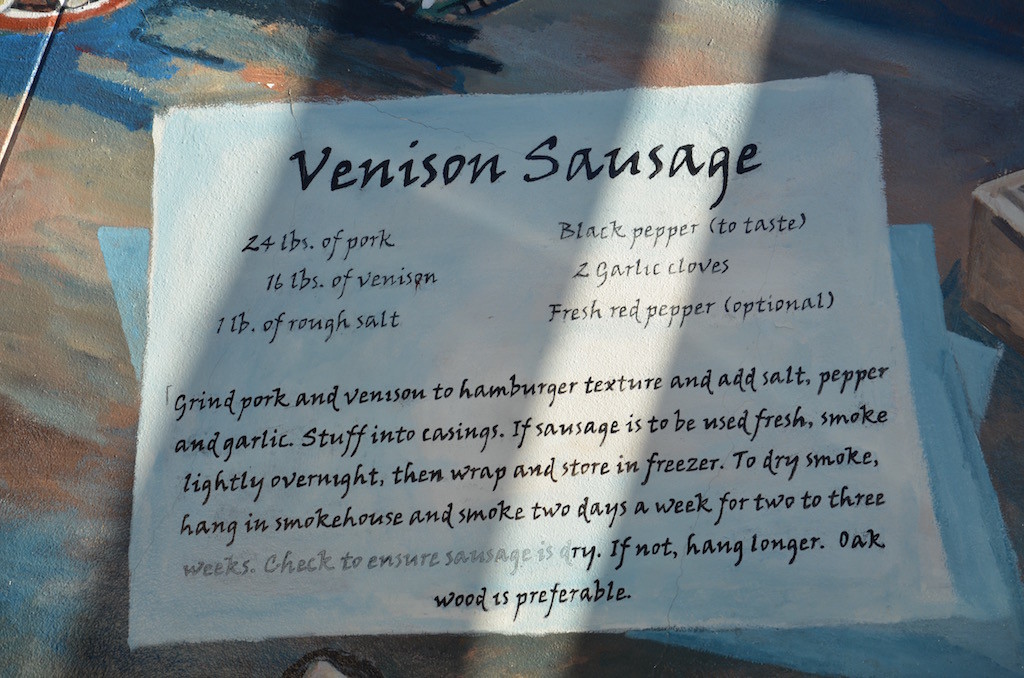 Venison Sausage
24 lbs. of pork
16 lbs. of venison
1 lb. of rough salt
Black pepper (to taste)
2 Garlic cloves
Fresh red pepper (optional)
Grind pork and venison to hamburger texture and add salt, pepper
and garlic. Stuff into casings. If sausage is to be used fresh, smoke
lightly overnight, then wrap and store in freezer. To dry smoke,
hang in smokehouse and smoke two days a week for two to three
weeks. Check to ensure sausage is dry. If not, hang longer. Oak
wood is preferable.